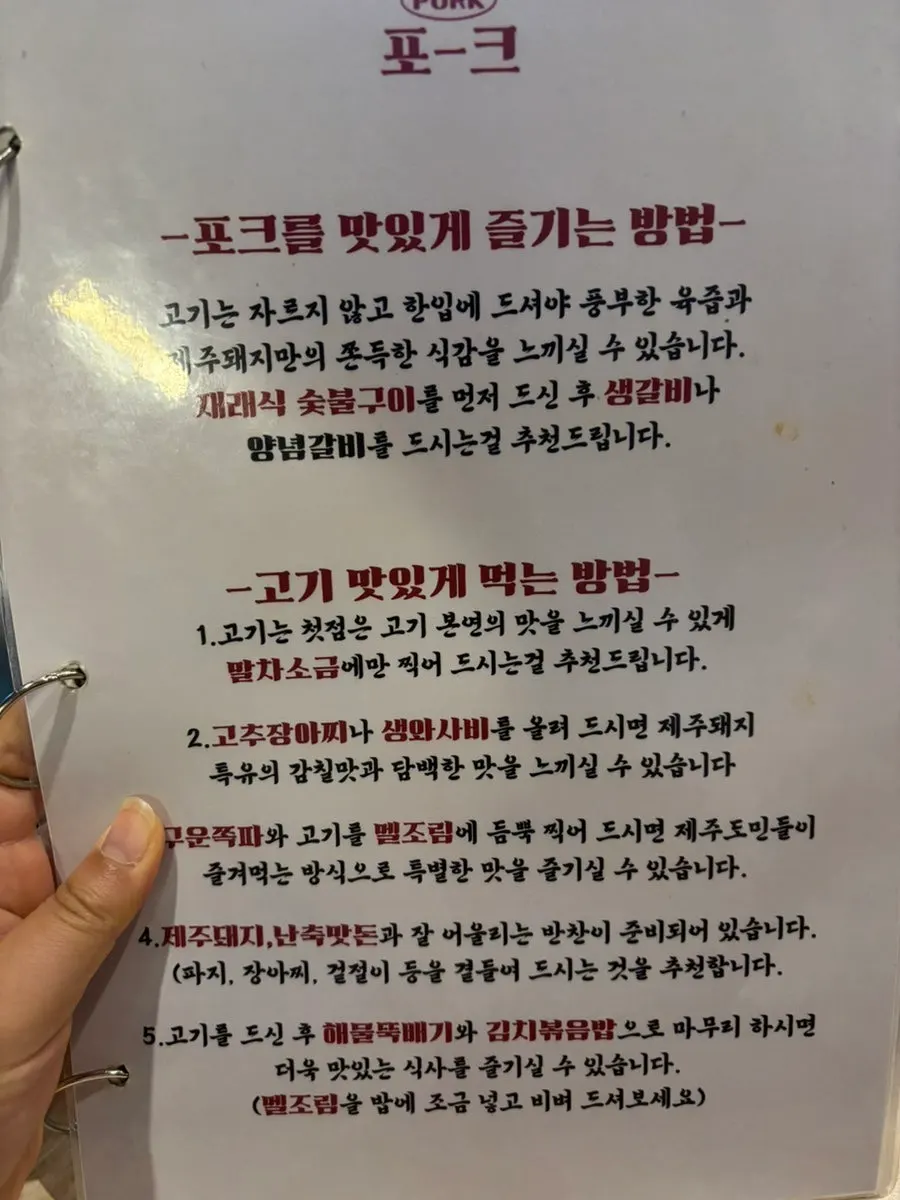 PORK
포크
-포크를 맛있게 즐기는 방법-
고기는 자르지 않고 한입에 드셔야 풍부한 육즙과
제주돼지만의 쫀득한 식감을 느끼실 수 있습니다.
재래식 숯불구이를 먼저 드신 후 생갈비나
양념갈비를 드시는걸 추천드립니다.
-고기 맛있게 먹는 방법-
1.고기는 첫점은 고기 본연의 맛을 느끼실 수 있게
말차소금에만 찍어 드시는걸 추천드립니다.
2.고추장아찌나 생와사비를 올려 드시면 제주돼지
특유의 감칠맛과 담백한 맛을 느끼실 수 있습니다
구운쪽파와 고기를 멜조림에 듬뿍 찍어 드시면 제주도민들이
즐겨먹는 방식으로 특별한 맛을 즐기실 수 있습니다.
4.제주돼지,난축맛돈과 잘 어울리는 반찬이 준비되어 있습니다.
(파지, 장아찌, 겉절이 등을 곁들여 드시는 것을 추천합니다.
5.고기를 드신 후 해물뚝배기와 김치볶음밥으로 마무리 하시면
더욱 맛있는 식사를 즐기실 수 있습니다.
(멜조림을 밥에 조금 넣고 비벼 드셔보세요)